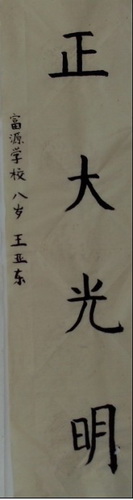 正大光明
富源学校 八岁 王亚东